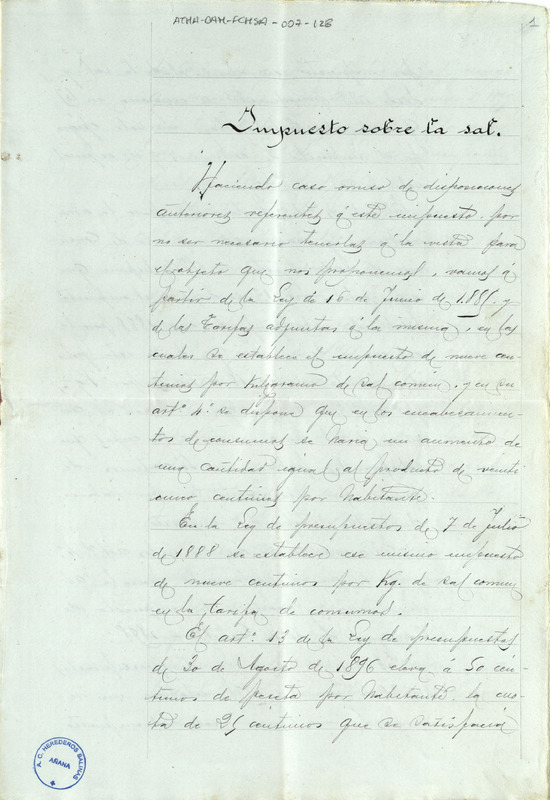 ATHA-DAH-FCHSA-007-128
1
Impuesto sobre la sal.
Haciendo caso omiso de disposiciones
anteriores referentes á este impuesto, por
no ser necesario tenerlas á la vista para
el objeto que nos proponemos, vamos á
partir de la Ley de 16 de Junio de 1.885, y
de las tarifas adjuntas á la misma, en las
cuales se establece el impuesto de nueve cen-
timos por kilogramo de sal comun, y en su
artº 4º se dispone que en los encabezamien-
tos de consumos se haria un aumento de
una cantidad igual al producto de veinti
cinco centimos por habitante.
En la Ley de presupuestos de 7 de Julio
de 1888 se establece ese mismo impuesto
de nueve centimos por Kg. de sal comun
en la tarifa de consumos.
El artº 13 de la Ley de presupuestos
de 30 de Agosto de 1896 eleva á 50 cén-
timos de peseta por habitante la cuo-
ta de 25 centimos que se satisfacia
A. C. HEREDEROS SALINAS
ARANA